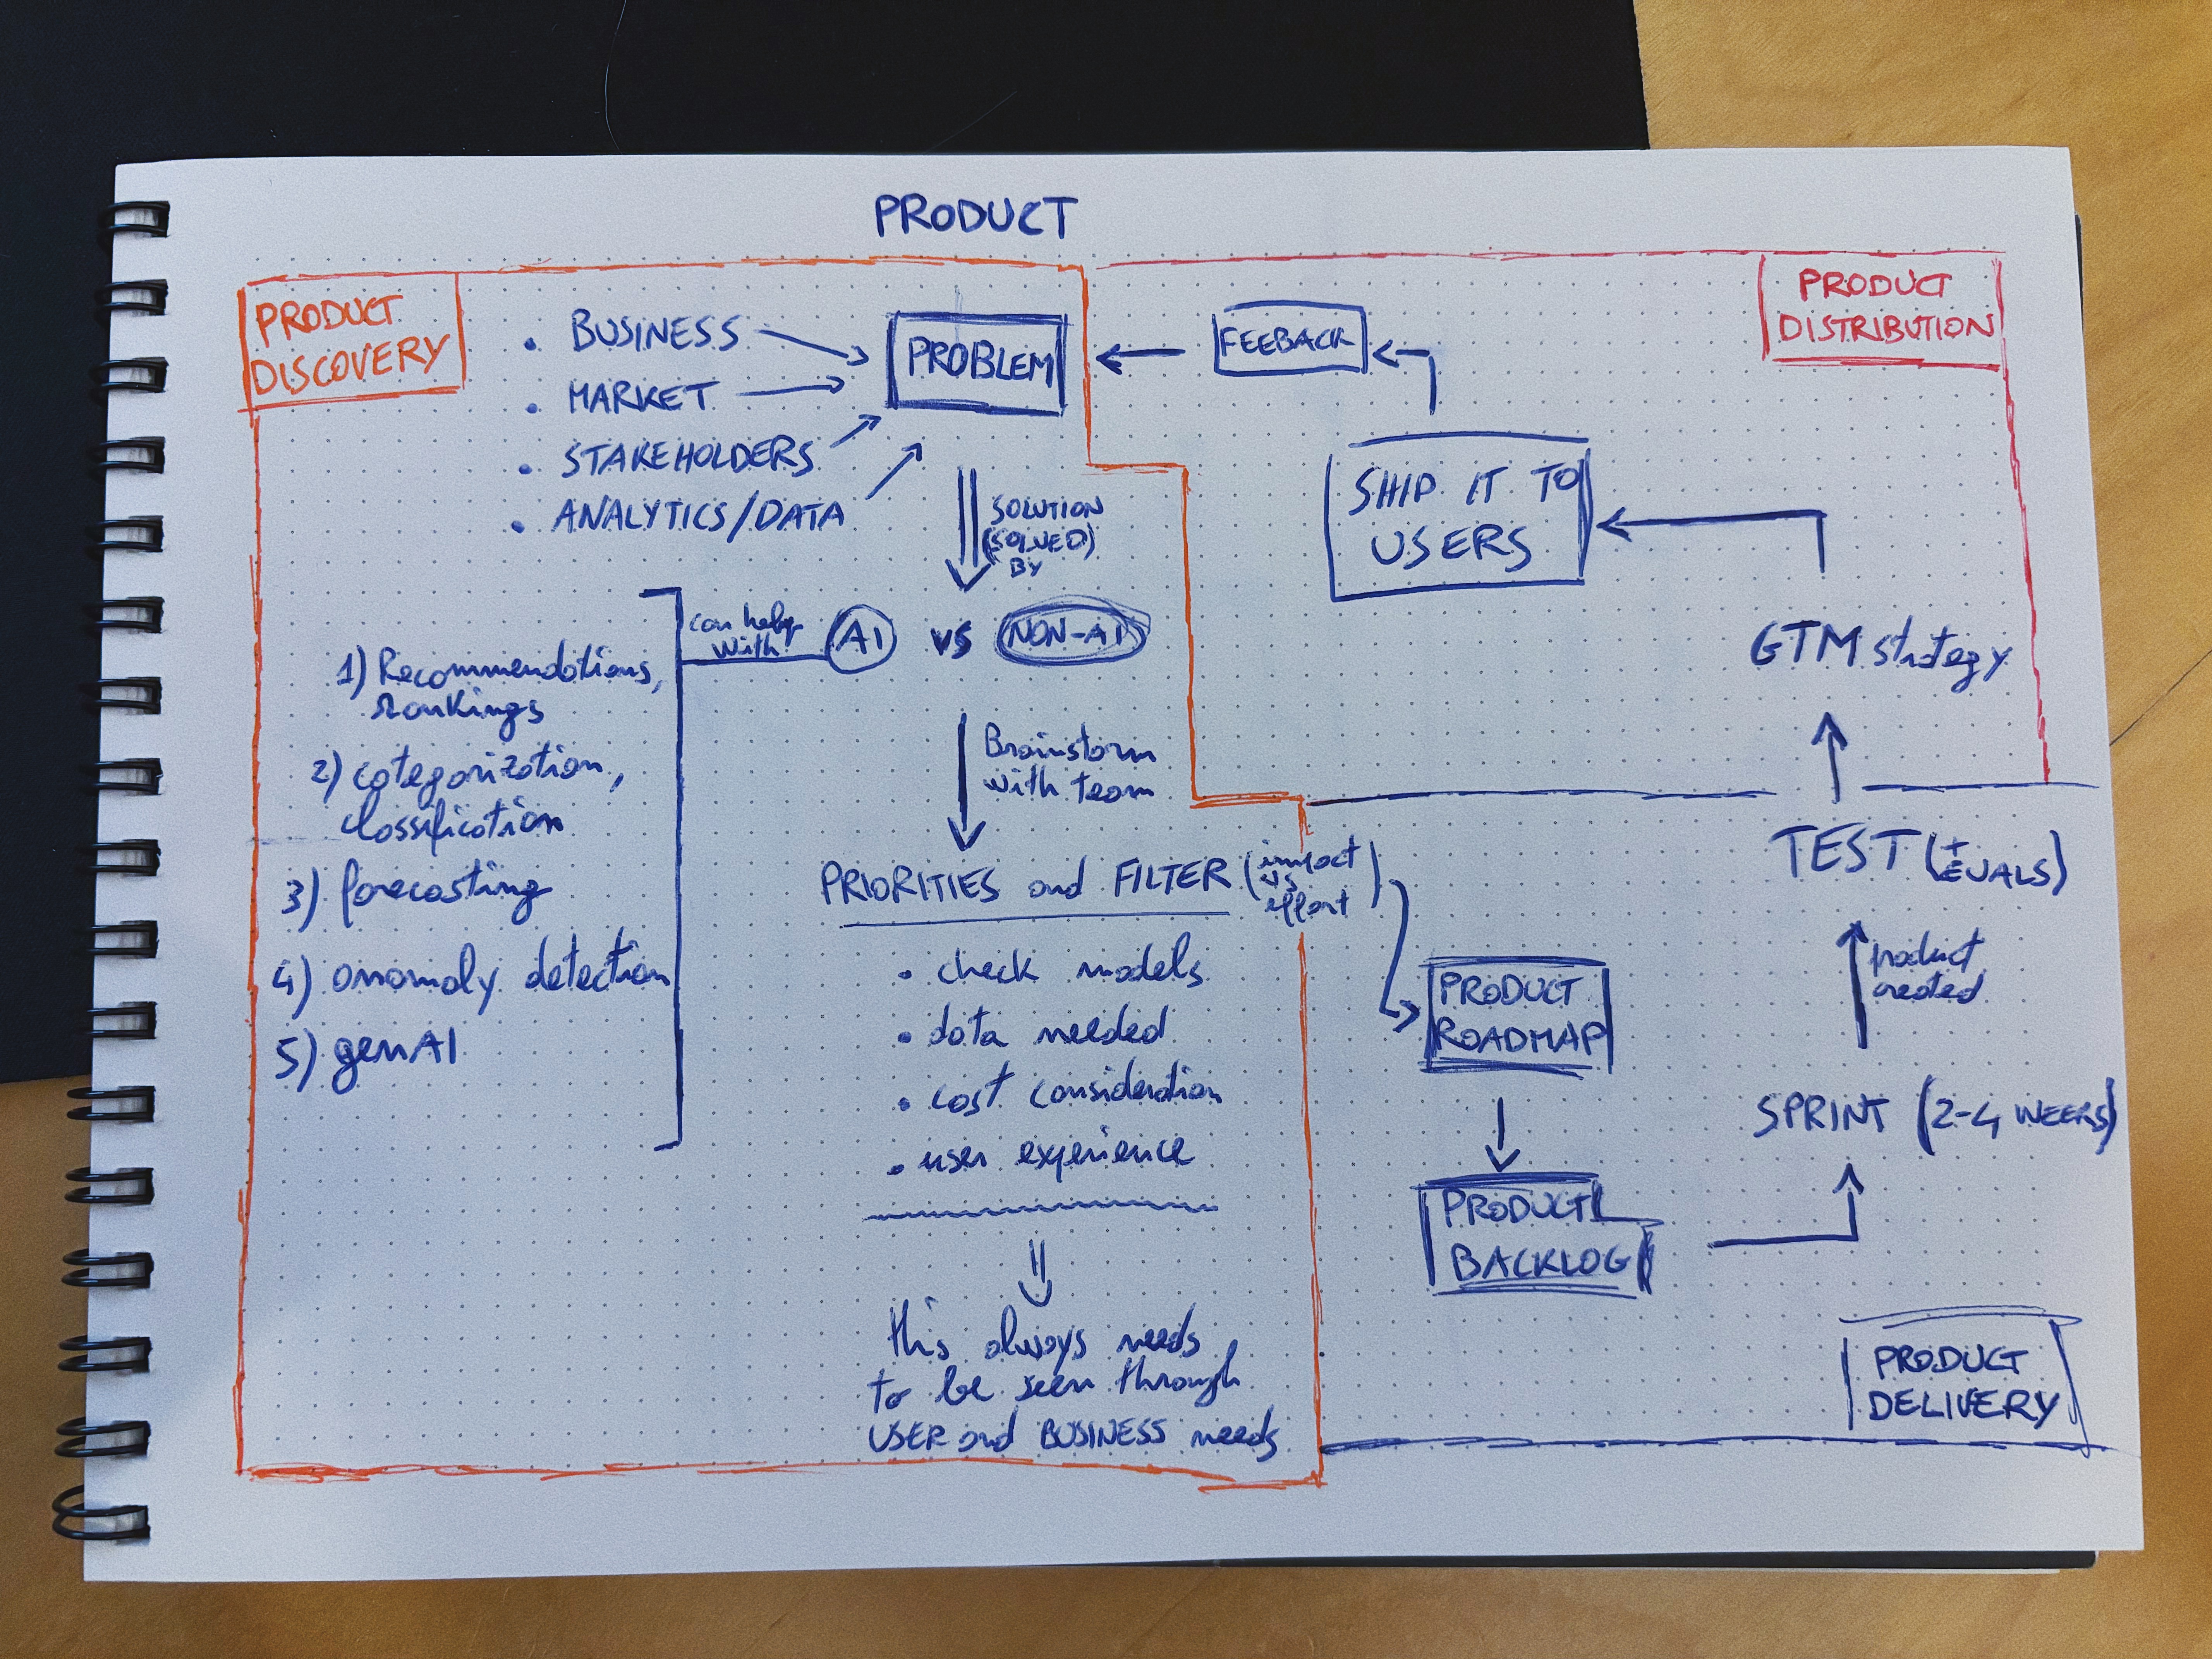 PRODUCT
PRODUCT
DISCOVERY
• BUSINESS
• MARKET
• STAKEHOLDERS
• ANALYTICS/DATA
PROBLEM
SOLUTION
(SOLVED)
BY
AI vs NON-AI
can help
with
1) Recommendations,
rankings
2) categorization,
classification
3) forecasting
4) anomaly detection
5) genAI
Brainstorm
with team
PRIORITIES and FILTER (impact
vs
effort)
• check models
• data needed
• cost consideration
• user experience
this always needs
to be seen through
USER and BUSINESS needs
PRODUCT
ROADMAP
PRODUCT
BACKLOG
SPRINT (2-4 WEEKS)
product
created
TEST (+
EVALS)
PRODUCT
DELIVERY
GTM strategy
SHIP IT TO
USERS
FEEBACK
PRODUCT
DISTRIBUTION